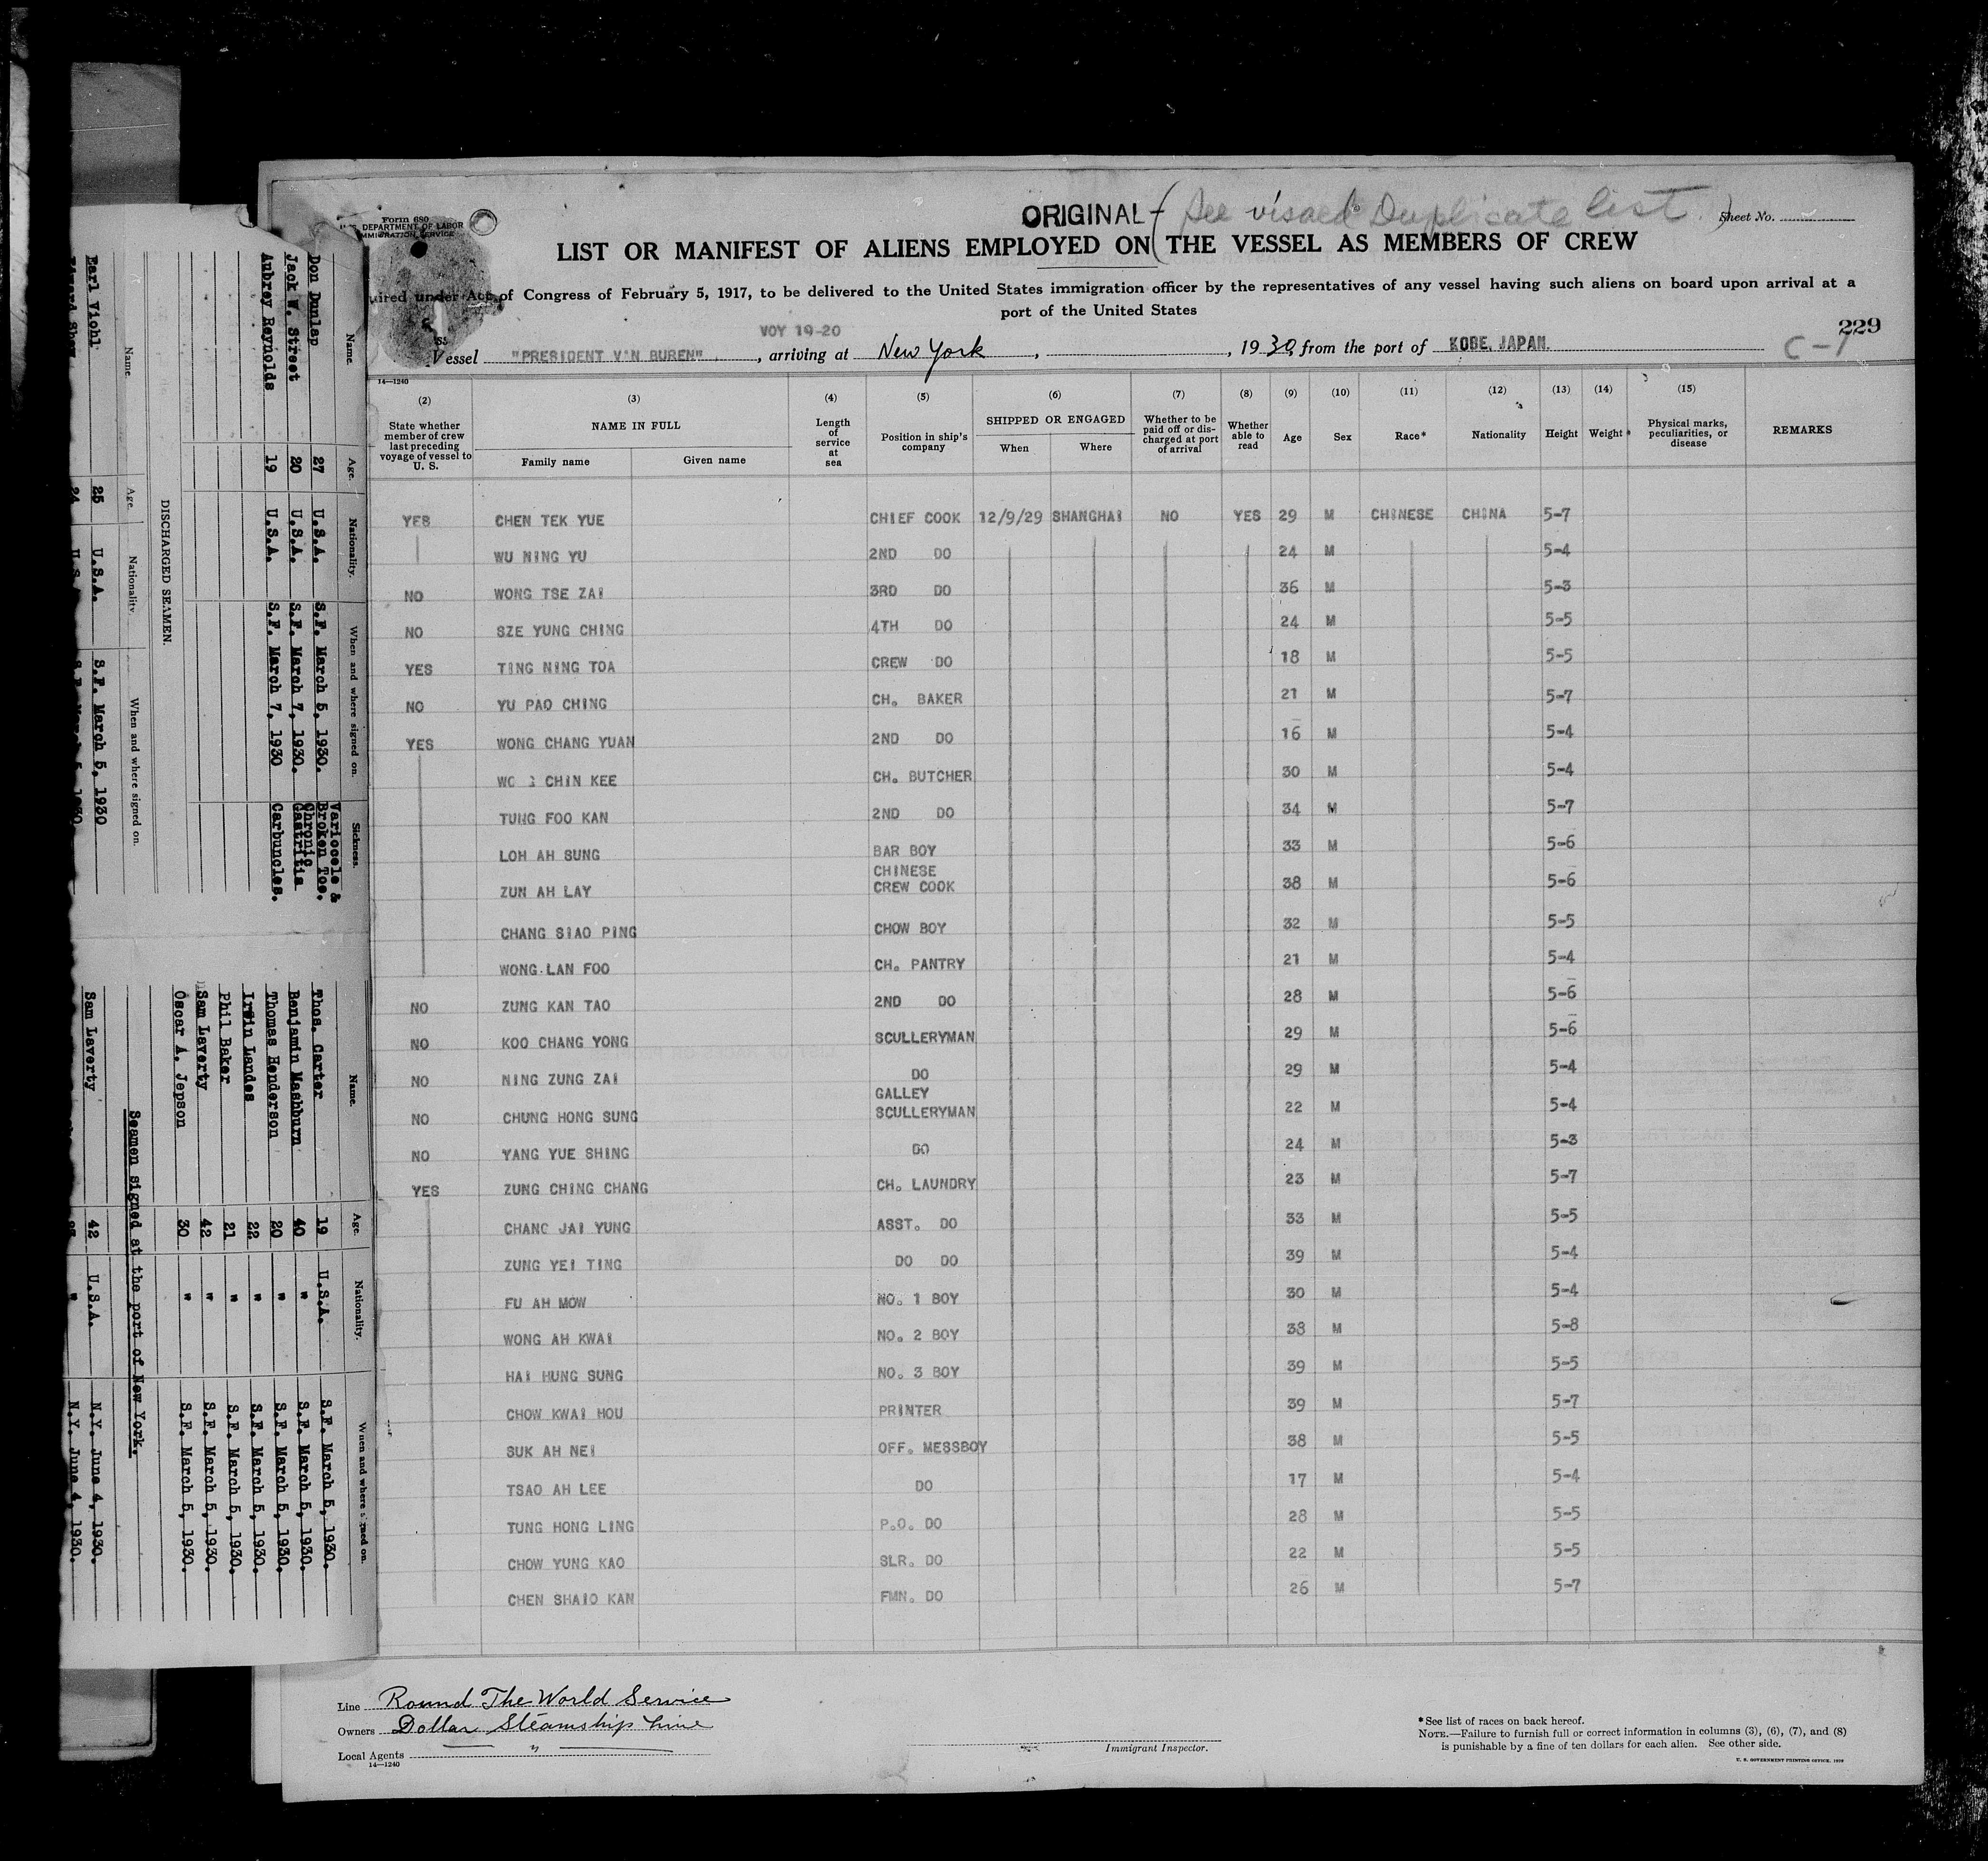 Form 680
U.S. DEPARTMENT OF LABOR
IMMIGRATION SERVICE
ORIGINAL (See visaed Duplicate list.)
Sheet No.
LIST OR MANIFEST OF ALIENS EMPLOYED ON THE VESSEL AS MEMBERS OF CREW
uired under Act of Congress of February 5, 1917, to be delivered to the United States immigration officer by the representatives of any vessel having such aliens on board upon arrival at a
port of the United States
VOY 19-20
229
SS
Vessel "PRESIDENT VAN BUREN", arriving at New York, , 1930, from the port of KOBE, JAPAN.
C-1
14—1240
(2) (3) (4) (5) (6) (7) (8) (9) (10) (11) (12) (13) (14) (15)
State whether member of crew last preceding voyage of vessel to U. S.
NAME IN FULL
Family name Given name
Length of service at sea
Position in ship's company
SHIPPED OR ENGAGED
When Where
Whether to be paid off or discharged at port of arrival
Whether able to read
Age Sex Race* Nationality Height Weight
Physical marks, peculiarities, or disease
REMARKS
YES CHEN TEK YUE CHIEF COOK 12/9/29 SHANGHAI NO YES 29 M CHINESE CHINA 5-7
WU NING YU 2ND DO 24 M 5-4
NO WONG TSE ZAI 3RD DO 36 M 5-3
NO SZE YUNG CHING 4TH DO 24 M 5-5
YES TING NING TOA CREW DO 18 M 5-5
NO YU PAO CHING CH. BAKER 21 M 5-7
YES WONG CHANG YUAN 2ND DO 16 M 5-4
CHIN KEE CH. BUTCHER 30 M 5-4
TUNG FOO KAN 2ND DO 34 M 5-7
LOH AH SUNG BAR BOY 33 M 5-6
ZUN AH LAY CHINESE CREW COOK 38 M 5-6
CHANG SIAO PING CHOW BOY 32 M 5-5
WONG LAN FOO CH. PANTRY 21 M 5-4
NO ZUNG KAN TAO 2ND DO 28 M 5-6
NO KOO CHANG YONG SCULLERYMAN 29 M 5-6
NO NING ZUNG ZAI DO 29 M 5-4
NO CHUNG HONG SUNG GALLEY SCULLERYMAN 22 M 5-4
NO YANG YUE SHING DO 24 M 5-3
YES ZUNG CHING CHANG CH. LAUNDRY 23 M 5-7
CHANG JAI YUNG ASST. DO 33 M 5-5
ZUNG YEI TING DO DO 39 M 5-4
FU AH MOW NO. 1 BOY 30 M 5-4
WONG AH KWAI NO. 2 BOY 38 M 5-8
HAI HUNG SUNG NO. 3 BOY 39 M 5-5
CHOW KWAI HOU PRINTER 39 M 5-7
SUK AH NEI OFF. MESSBOY 38 M 5-5
TSAO AH LEE DO 17 M 5-4
TUNG HONG LING P.O. DO 28 M 5-5
CHOW YUNG KAO SLR. DO 22 M 5-5
CHEN SHAIO KAN FMN. DO 26 M 5-7
Line Round The World Service
Owners Dollar Steamship Line
Local Agents "
14—1240
Immigrant Inspector.
*See list of races on back hereof.
NOTE.—Failure to furnish full or correct information in columns (3), (6), (7), and (8)
is punishable by a fine of ten dollars for each alien. See other side.
U. S. GOVERNMENT PRINTING OFFICE, 1929
Name. Age. Nationality. When and where signed on. Sickness.
Don Dunlap 27 U.S.A. S.F. March 5, 1930. Varicocele & Broken Toe.
Jack W. Street 20 U.S.A. S.F. March 7, 1930. Chronic Gastritis
Aubrey Reynolds 19 U.S.A. S.F. March 7, 1930 Carbuncles.
DISCHARGED SEAMEN.
Name. Age. Nationality. When and where signed on.
Earl Viohl 25 U.S.A. S.F. March 5, 1930
24 U.S.A. S.F. March 5, 1930
Name. Age. Nationality. When and where signed on.
Thos. Carter 19 U.S.A. S.F. March 5, 1930.
Benjamin Mashburn 40 " S.F. March 5, 1930.
Thomas Henderson 20 " S.F. March 5, 1930.
Irwin Landes 22 " S.F. March 5, 1930.
Phil Baker 21 " S.F. March 5, 1930.
Sam Laverty 42 " S.F. March 5, 1930.
Oscar A. Jepson 30 " S.F. March 5, 1930.
Seamen signed at the port of New York.
Sam Laverty 42 U.S.A. N.Y. June 4, 1930.
" N.Y. June 4, 1930.